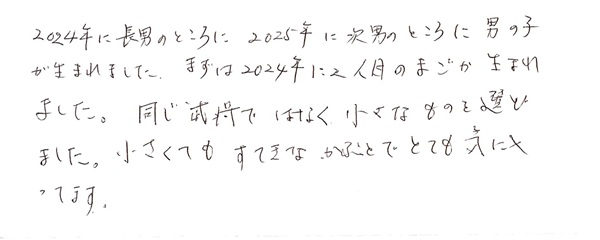 2024年に長男のところに 2025年に次男のところに男の子
が生まれました。まずは2024年に2人目のまごが生まれ
ました。同じ武将ではなく小さなものを選び
ました。小さくてもすてきなかぶとでとても気に入
ってます。